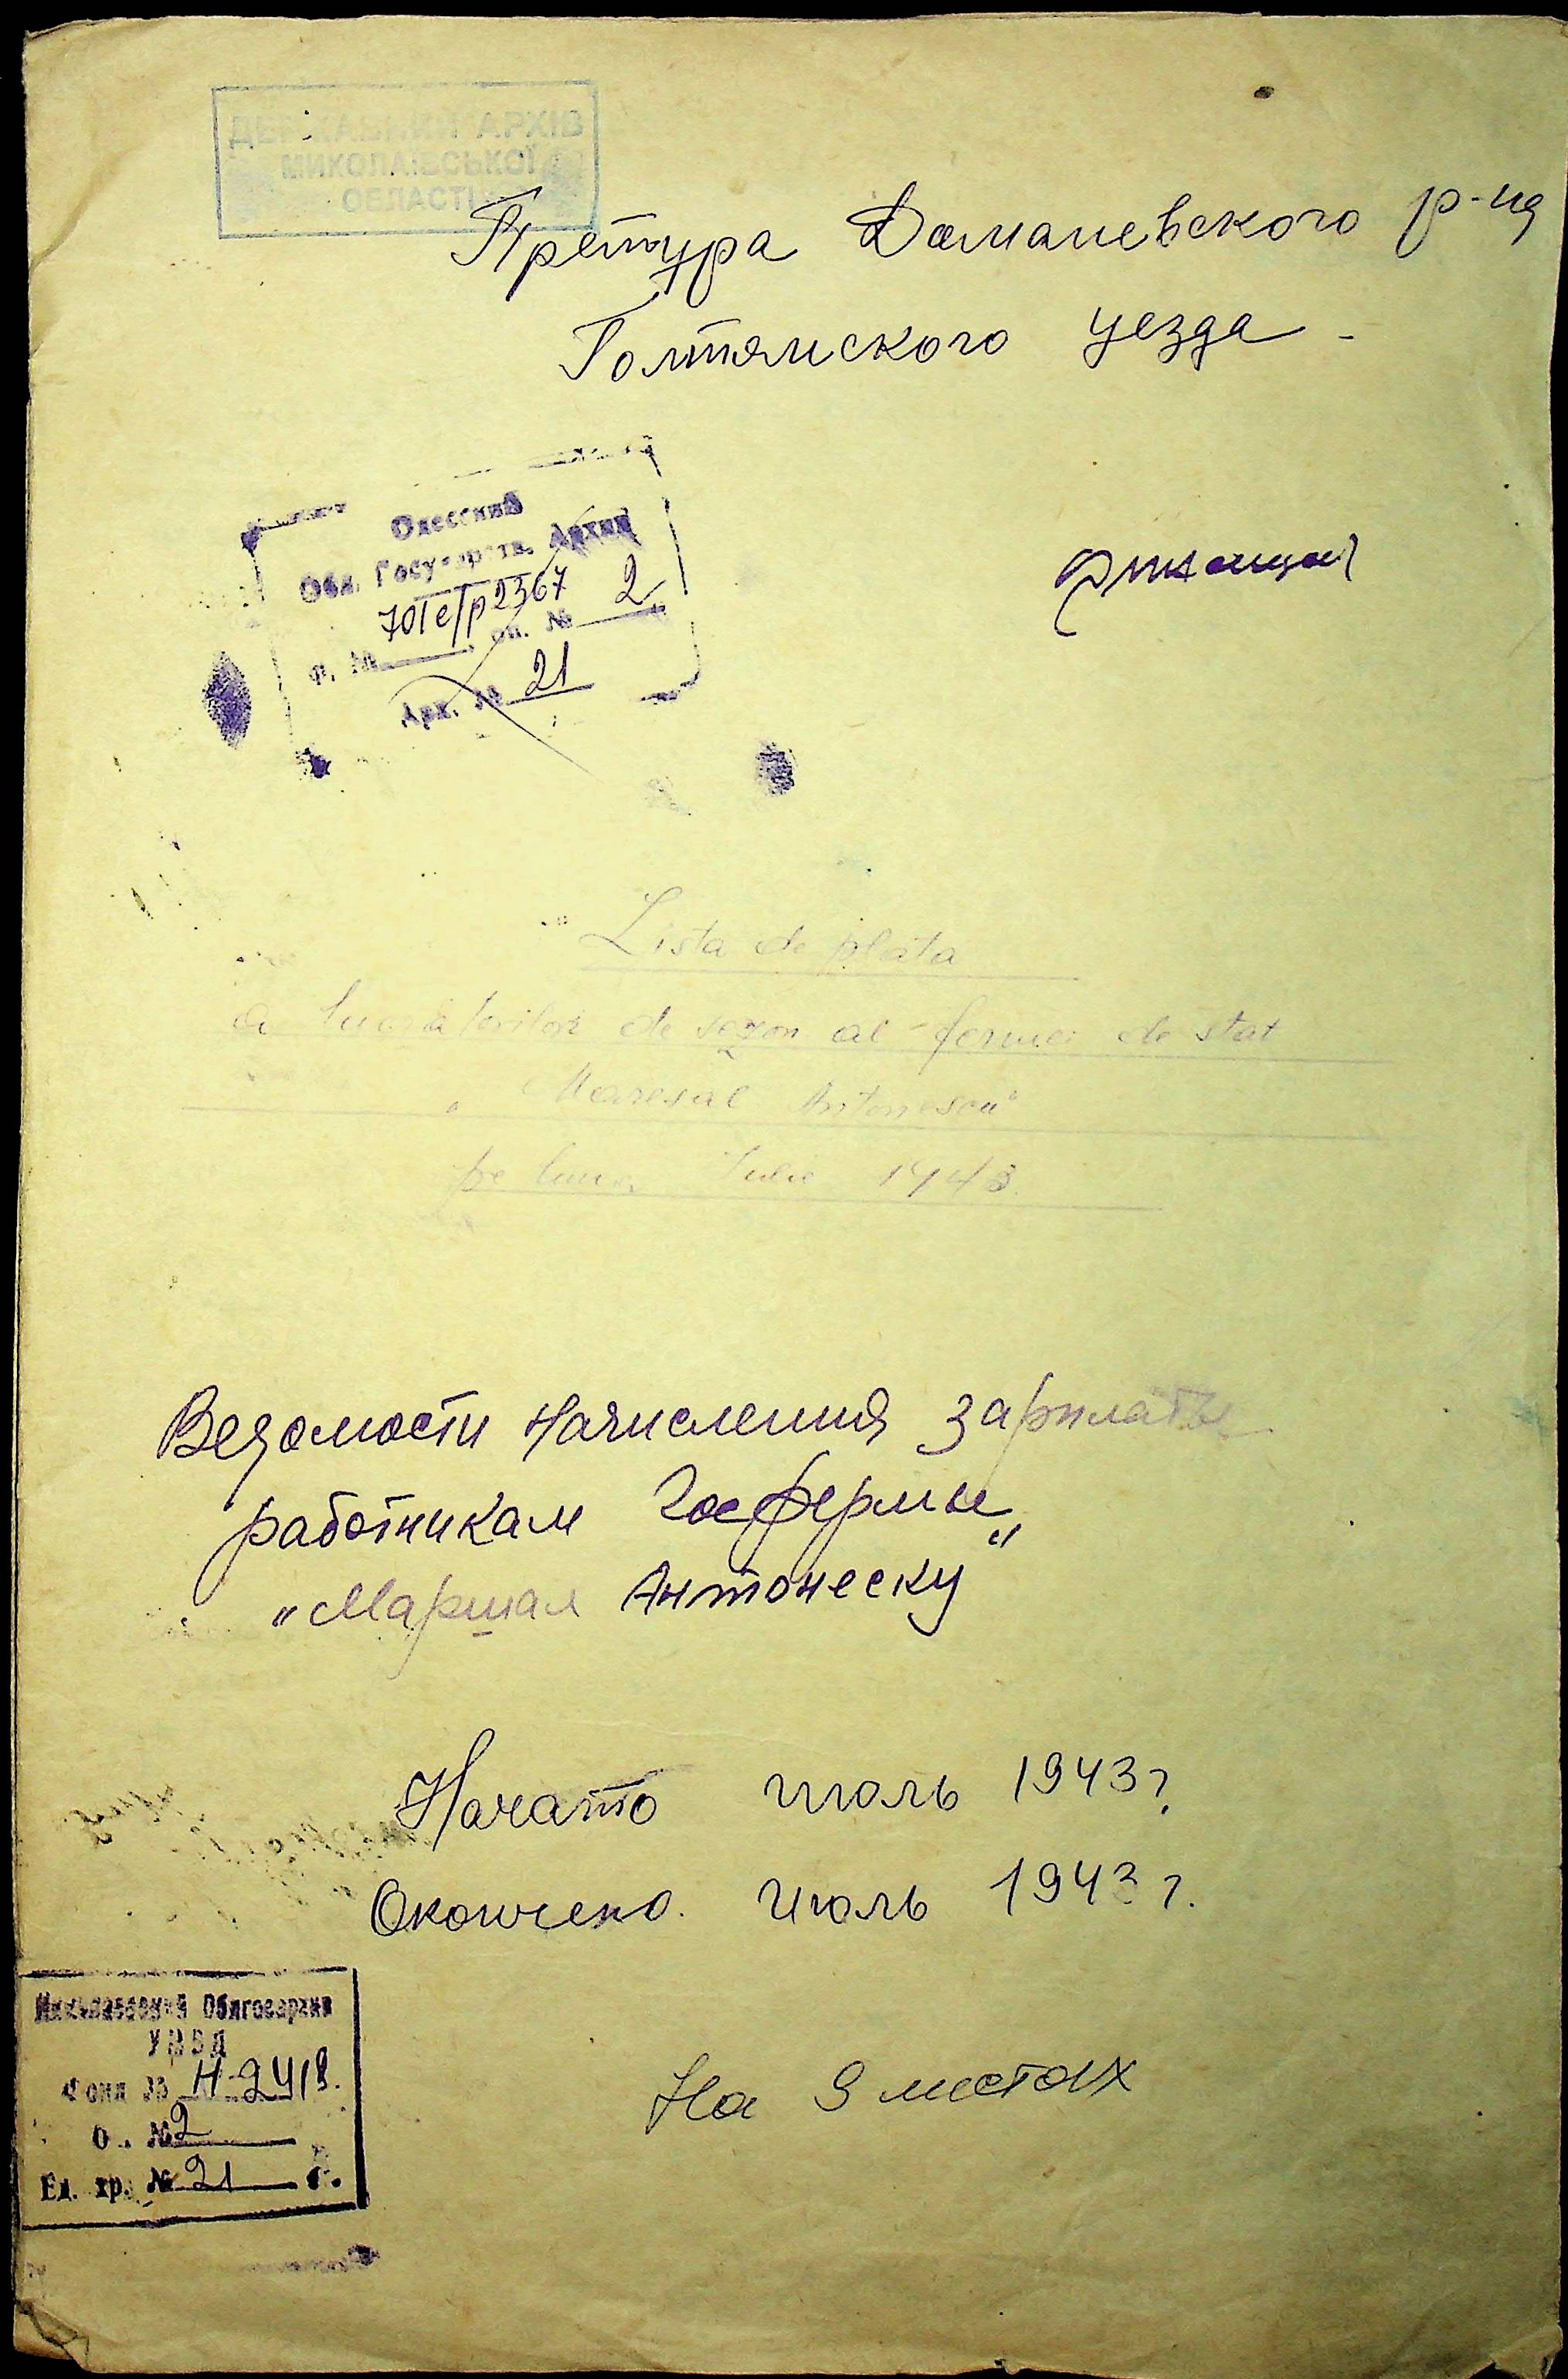 ДЕРЖАВНИЙ АРХІВ
МИКОЛАЇВСЬКОЇ
ОБЛАСТІ
Претура Доманевского р-на
Голтянского уезда
Одесский
Обл. Государств. Архив
ф. № 701с/р2367 оп. № 2
Арх. № 21
Lista de plata
a lucratorilor de sezon al fermei de stat
„Maresal Antonescu"
pe luna Iulie 1943
Ведомости начисления зарплаты
работникам Госфермы
„Маршал Антонеску"
Начато июль 1943 г.
Окончено. Июль 1943 г.
Николаевский Облгосархив
УМВД
Фонд № Н-2418.
О. № 2
Ед. хр. № 21
На 9 листах